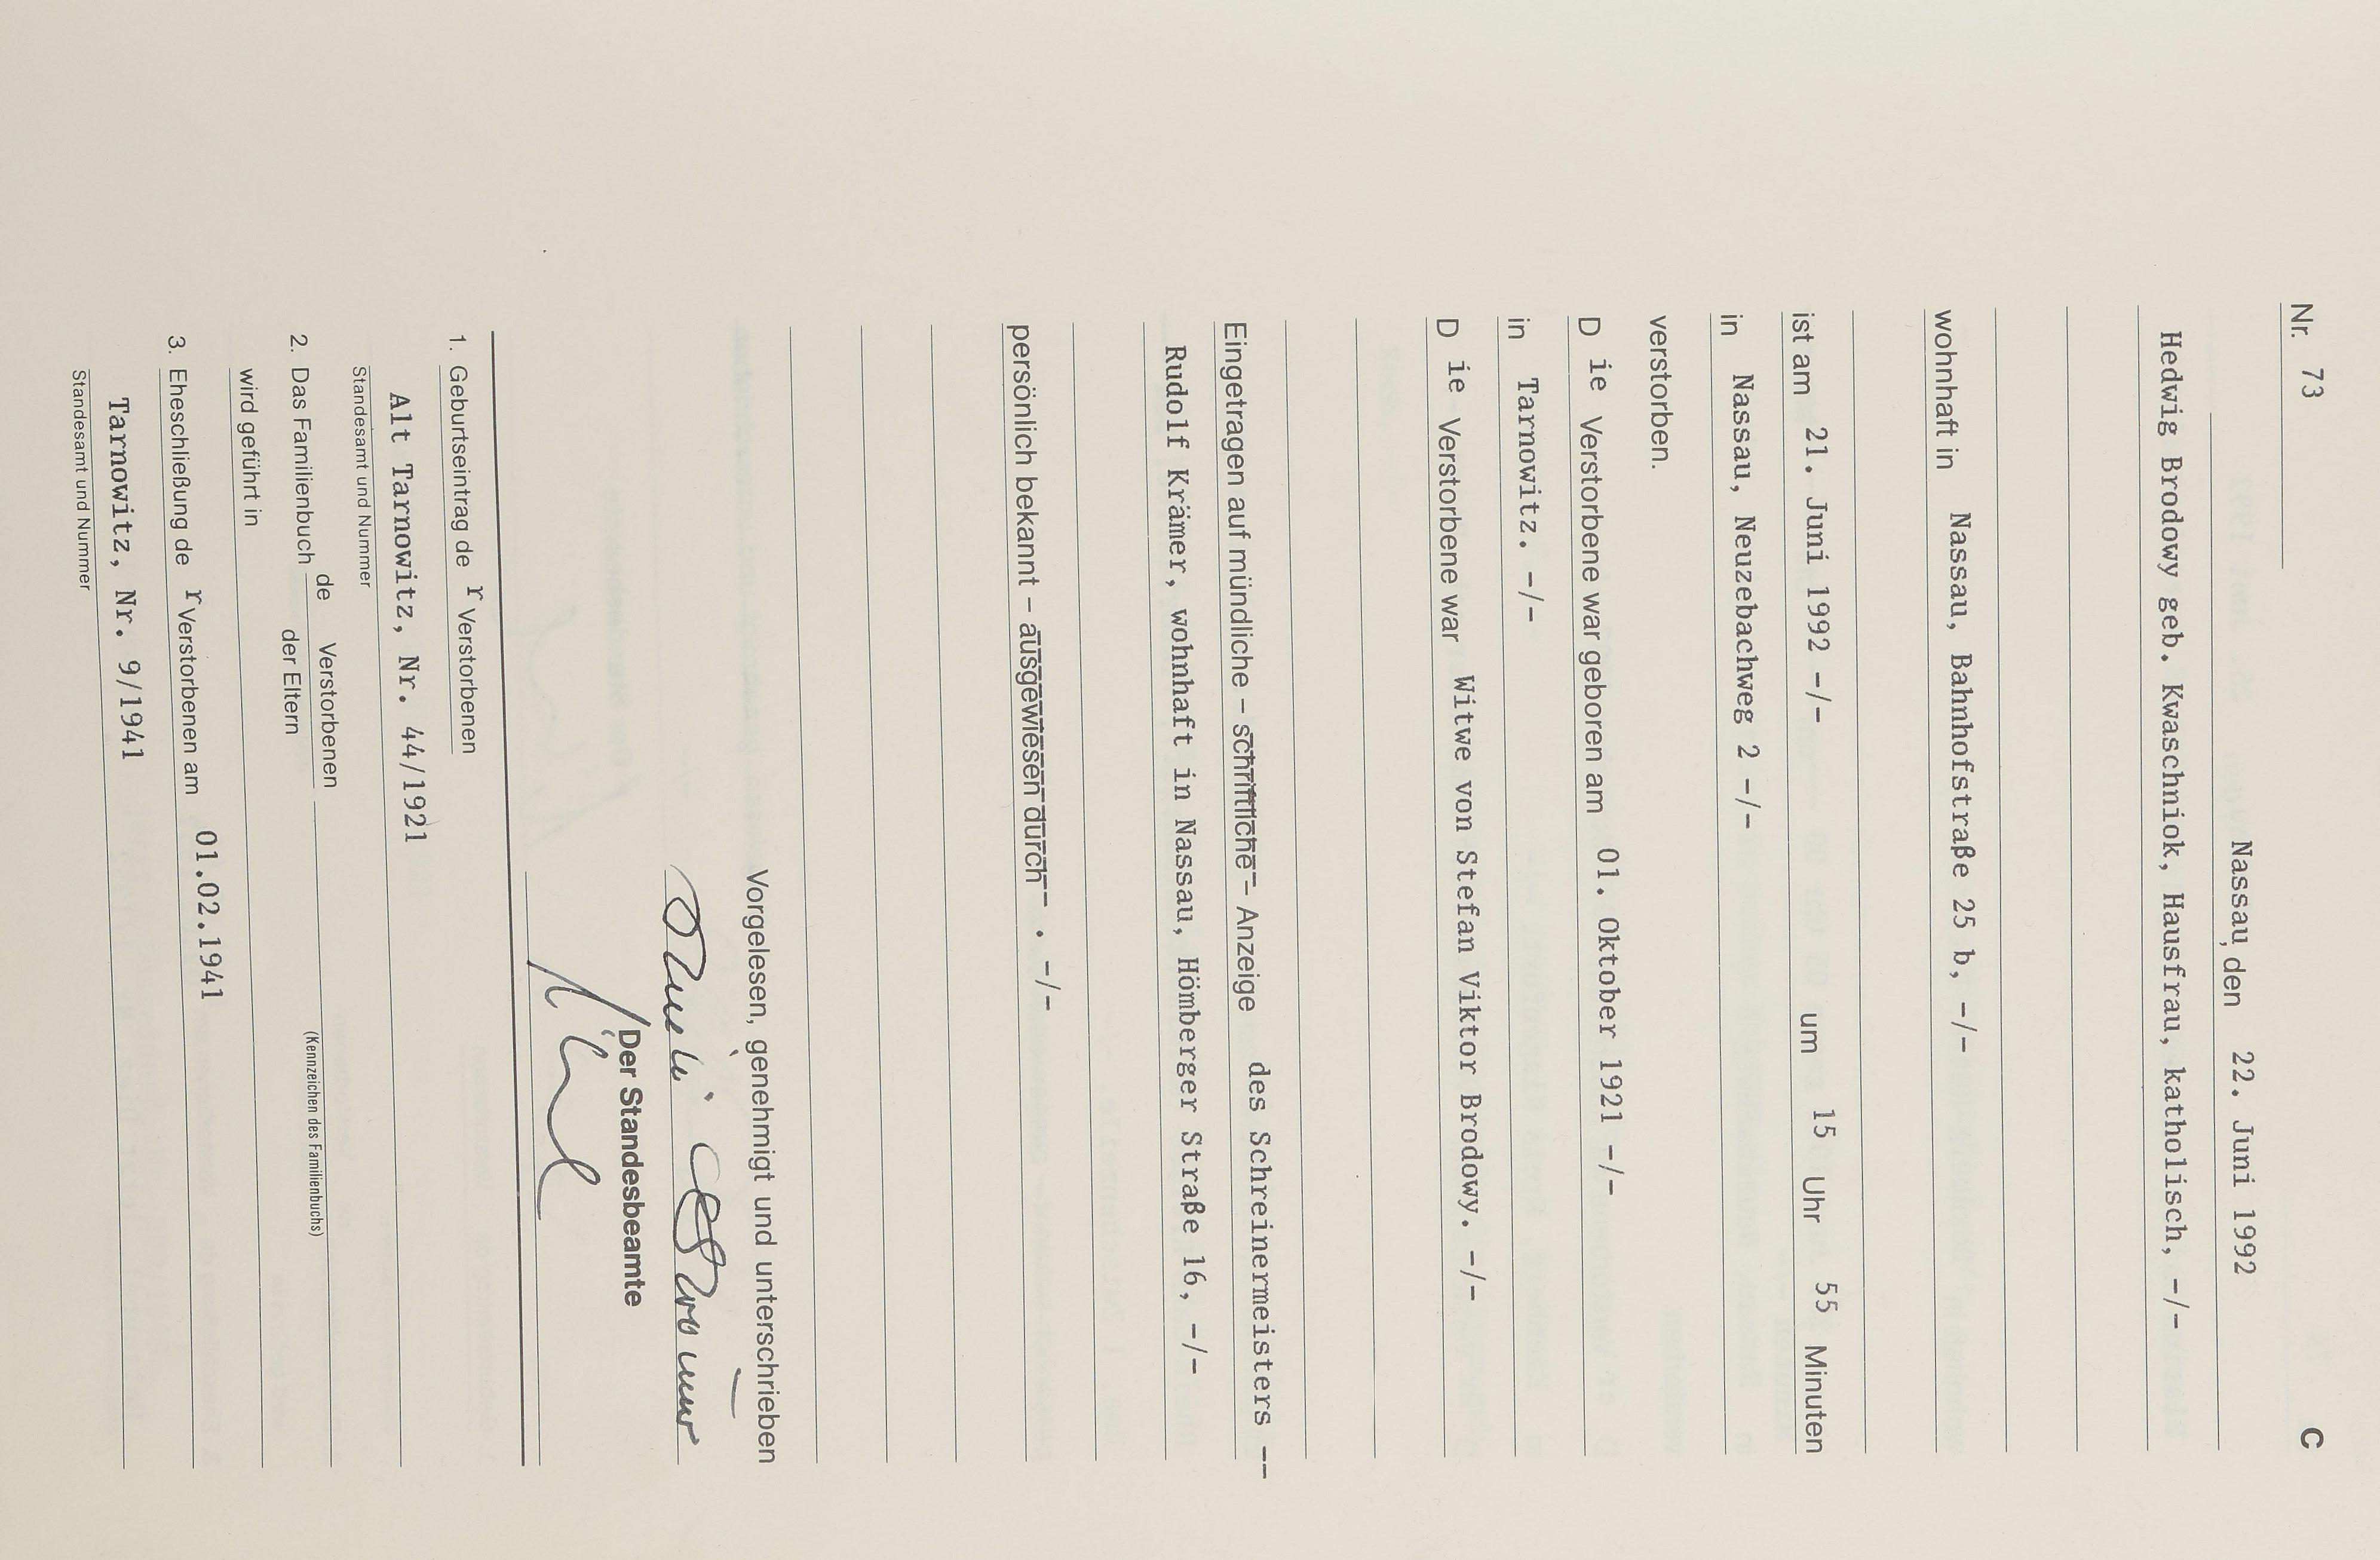 Nr. 73 C
Nassau, den 22. Juni 1992
Hedwig Brodowy geb. Kwaschniok, Hausfrau, katholisch, -/-
wohnhaft in Nassau, Bahnhofstraße 25 b, -/-
ist am 21. Juni 1992 -/- um 15 Uhr 55 Minuten
in Nassau, Neuzebachweg 2 -/-
verstorben.
D ie Verstorbene war geboren am 01. Oktober 1921 -/-
in Tarnowitz. -/-
D ie Verstorbene war Witwe von Stefan Viktor Brodowy. -/-
Eingetragen auf mündliche – schriftliche – Anzeige des Schreinermeisters --
Rudolf Krämer, wohnhaft in Nassau, Hömberger Straße 16, -/-
persönlich bekannt – ausgewiesen durch -- . -/-
Vorgelesen, genehmigt und unterschrieben
Der Standesbeamte
1. Geburtseintrag de r Verstorbenen
Alt Tarnowitz, Nr. 44/1921
Standesamt und Nummer
2. Das Familienbuch de Verstorbenen
der Eltern
(Kennzeichen des Familienbuchs)
wird geführt in
3. Eheschließung de r Verstorbenen am 01.02.1941
Tarnowitz, Nr. 9/1941
Standesamt und Nummer